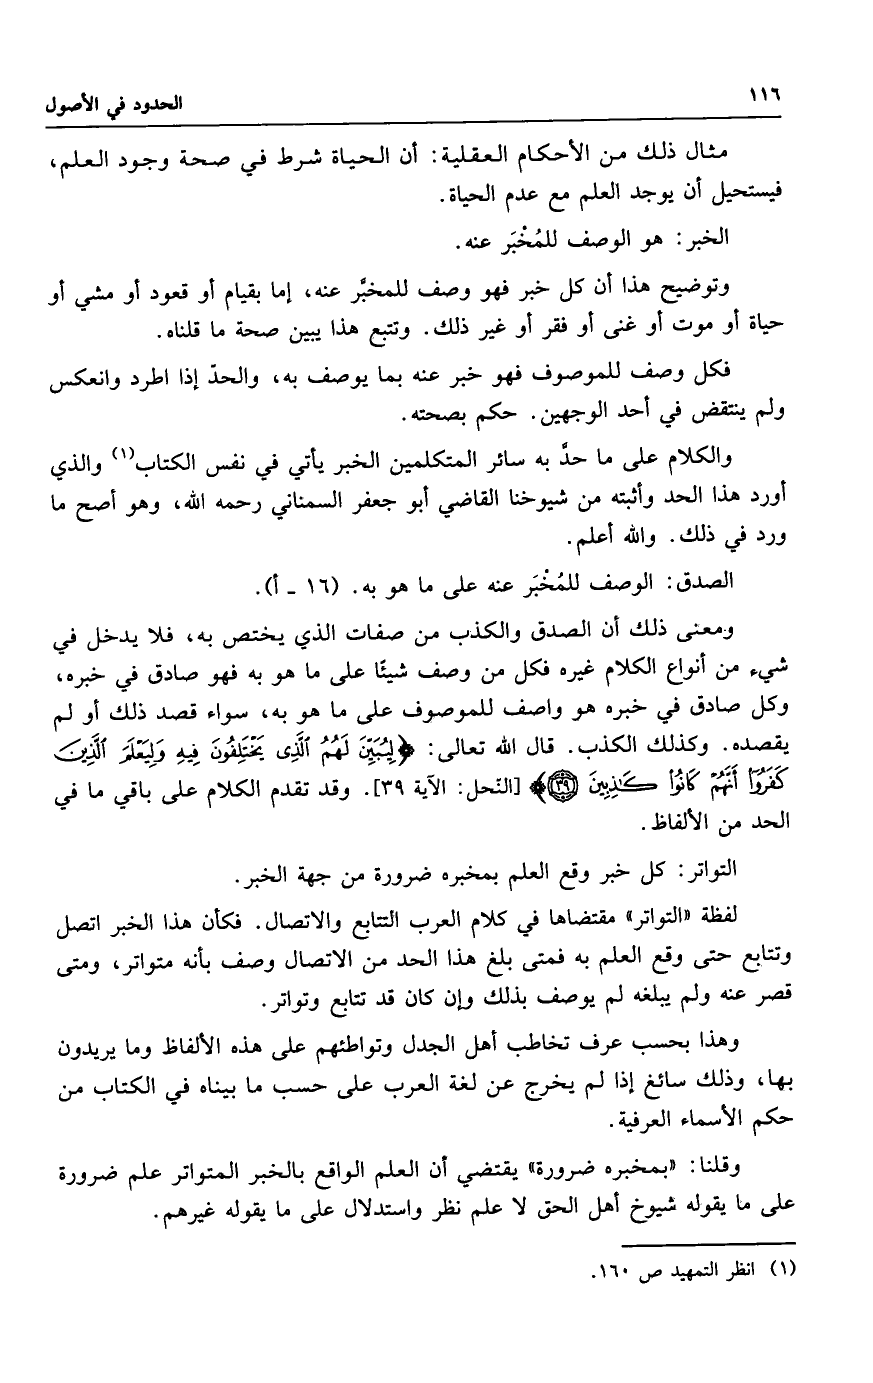 ١١٦
الحدود في الأصول
مثال ذلك من الأحكام العقلية: أن الحياة شرط في صحة وجود العلم،
فيستحيل أن يوجد العلم مع عدم الحياة.
الخبر: هو الوصف للمُخْبَر عنه.
وتوضيح هذا أن كل خبر فهو وصف للمخبَّر عنه، إما بقيام أو قعود أو مشي أو
حياة أو موت أو غنى أو فقر أو غير ذلك. وتتبع هذا يبين صحة ما قلناه.
فكل وصف للموصوف فهو خبر عنه بما يوصف به، والحدّ إذا اطرد وانعكس
ولم ينتقض في أحد الوجهين. حكم بصحته.
والكلام على ما حدَّ به سائر المتكلمين الخبر يأتي في نفس الكتاب(١) والذي
أورد هذا الحد وأثبته من شيوخنا القاضي أبو جعفر السمناني رحمه الله، وهو أصح ما
ورد في ذلك. والله أعلم.
الصدق: الوصف للمُخْبَر عنه على ما هو به. (١٦ - أ).
ومعنى ذلك أن الصدق والكذب من صفات الذي يختص به، فلا يدخل في
شيء من أنواع الكلام غيره فكل من وصف شيئًا على ما هو به فهو صادق في خبره،
وكل صادق في خبره هو واصف للموصوف على ما هو به، سواء قصد ذلك أو لم
يقصده. وكذلك الكذب. قال الله تعالى: ﴿لِيُبَيِّنَ لَهُمُ ٱلَّذِى يَخْتَلِفُونَ فِيهِ وَلِيَعْلَمَ ٱلَّذِينَ
كَفَرُوٓا۟ أَنَّهُمْ كَانُوا۟ كَـٰذِبِينَ ﴿٣٩﴾﴾ [النّحل: الآية ٣٩]. وقد تقدم الكلام على باقي ما في
الحد من الألفاظ.
التواتر: كل خبر وقع العلم بمخبره ضرورة من جهة الخبر.
لفظة «التواتر» مقتضاها في كلام العرب التتابع والاتصال. فكأن هذا الخبر اتصل
وتتابع حتى وقع العلم به فمتى بلغ هذا الحد من الاتصال وصف بأنه متواتر، ومتى
قصر عنه ولم يبلغه لم يوصف بذلك وإن كان قد تتابع وتواتر.
وهذا بحسب عرف تخاطب أهل الجدل وتواطئهم على هذه الألفاظ وما يريدون
بها، وذلك سائغ إذا لم يخرج عن لغة العرب على حسب ما بيناه في الكتاب من
حكم الأسماء العرفية.
وقلنا: «بمخبره ضرورة» يقتضي أن العلم الواقع بالخبر المتواتر علم ضرورة
على ما يقوله شيوخ أهل الحق لا علم نظر واستدلال على ما يقوله غيرهم.
(١) انظر التمهيد ص ١٦٠.